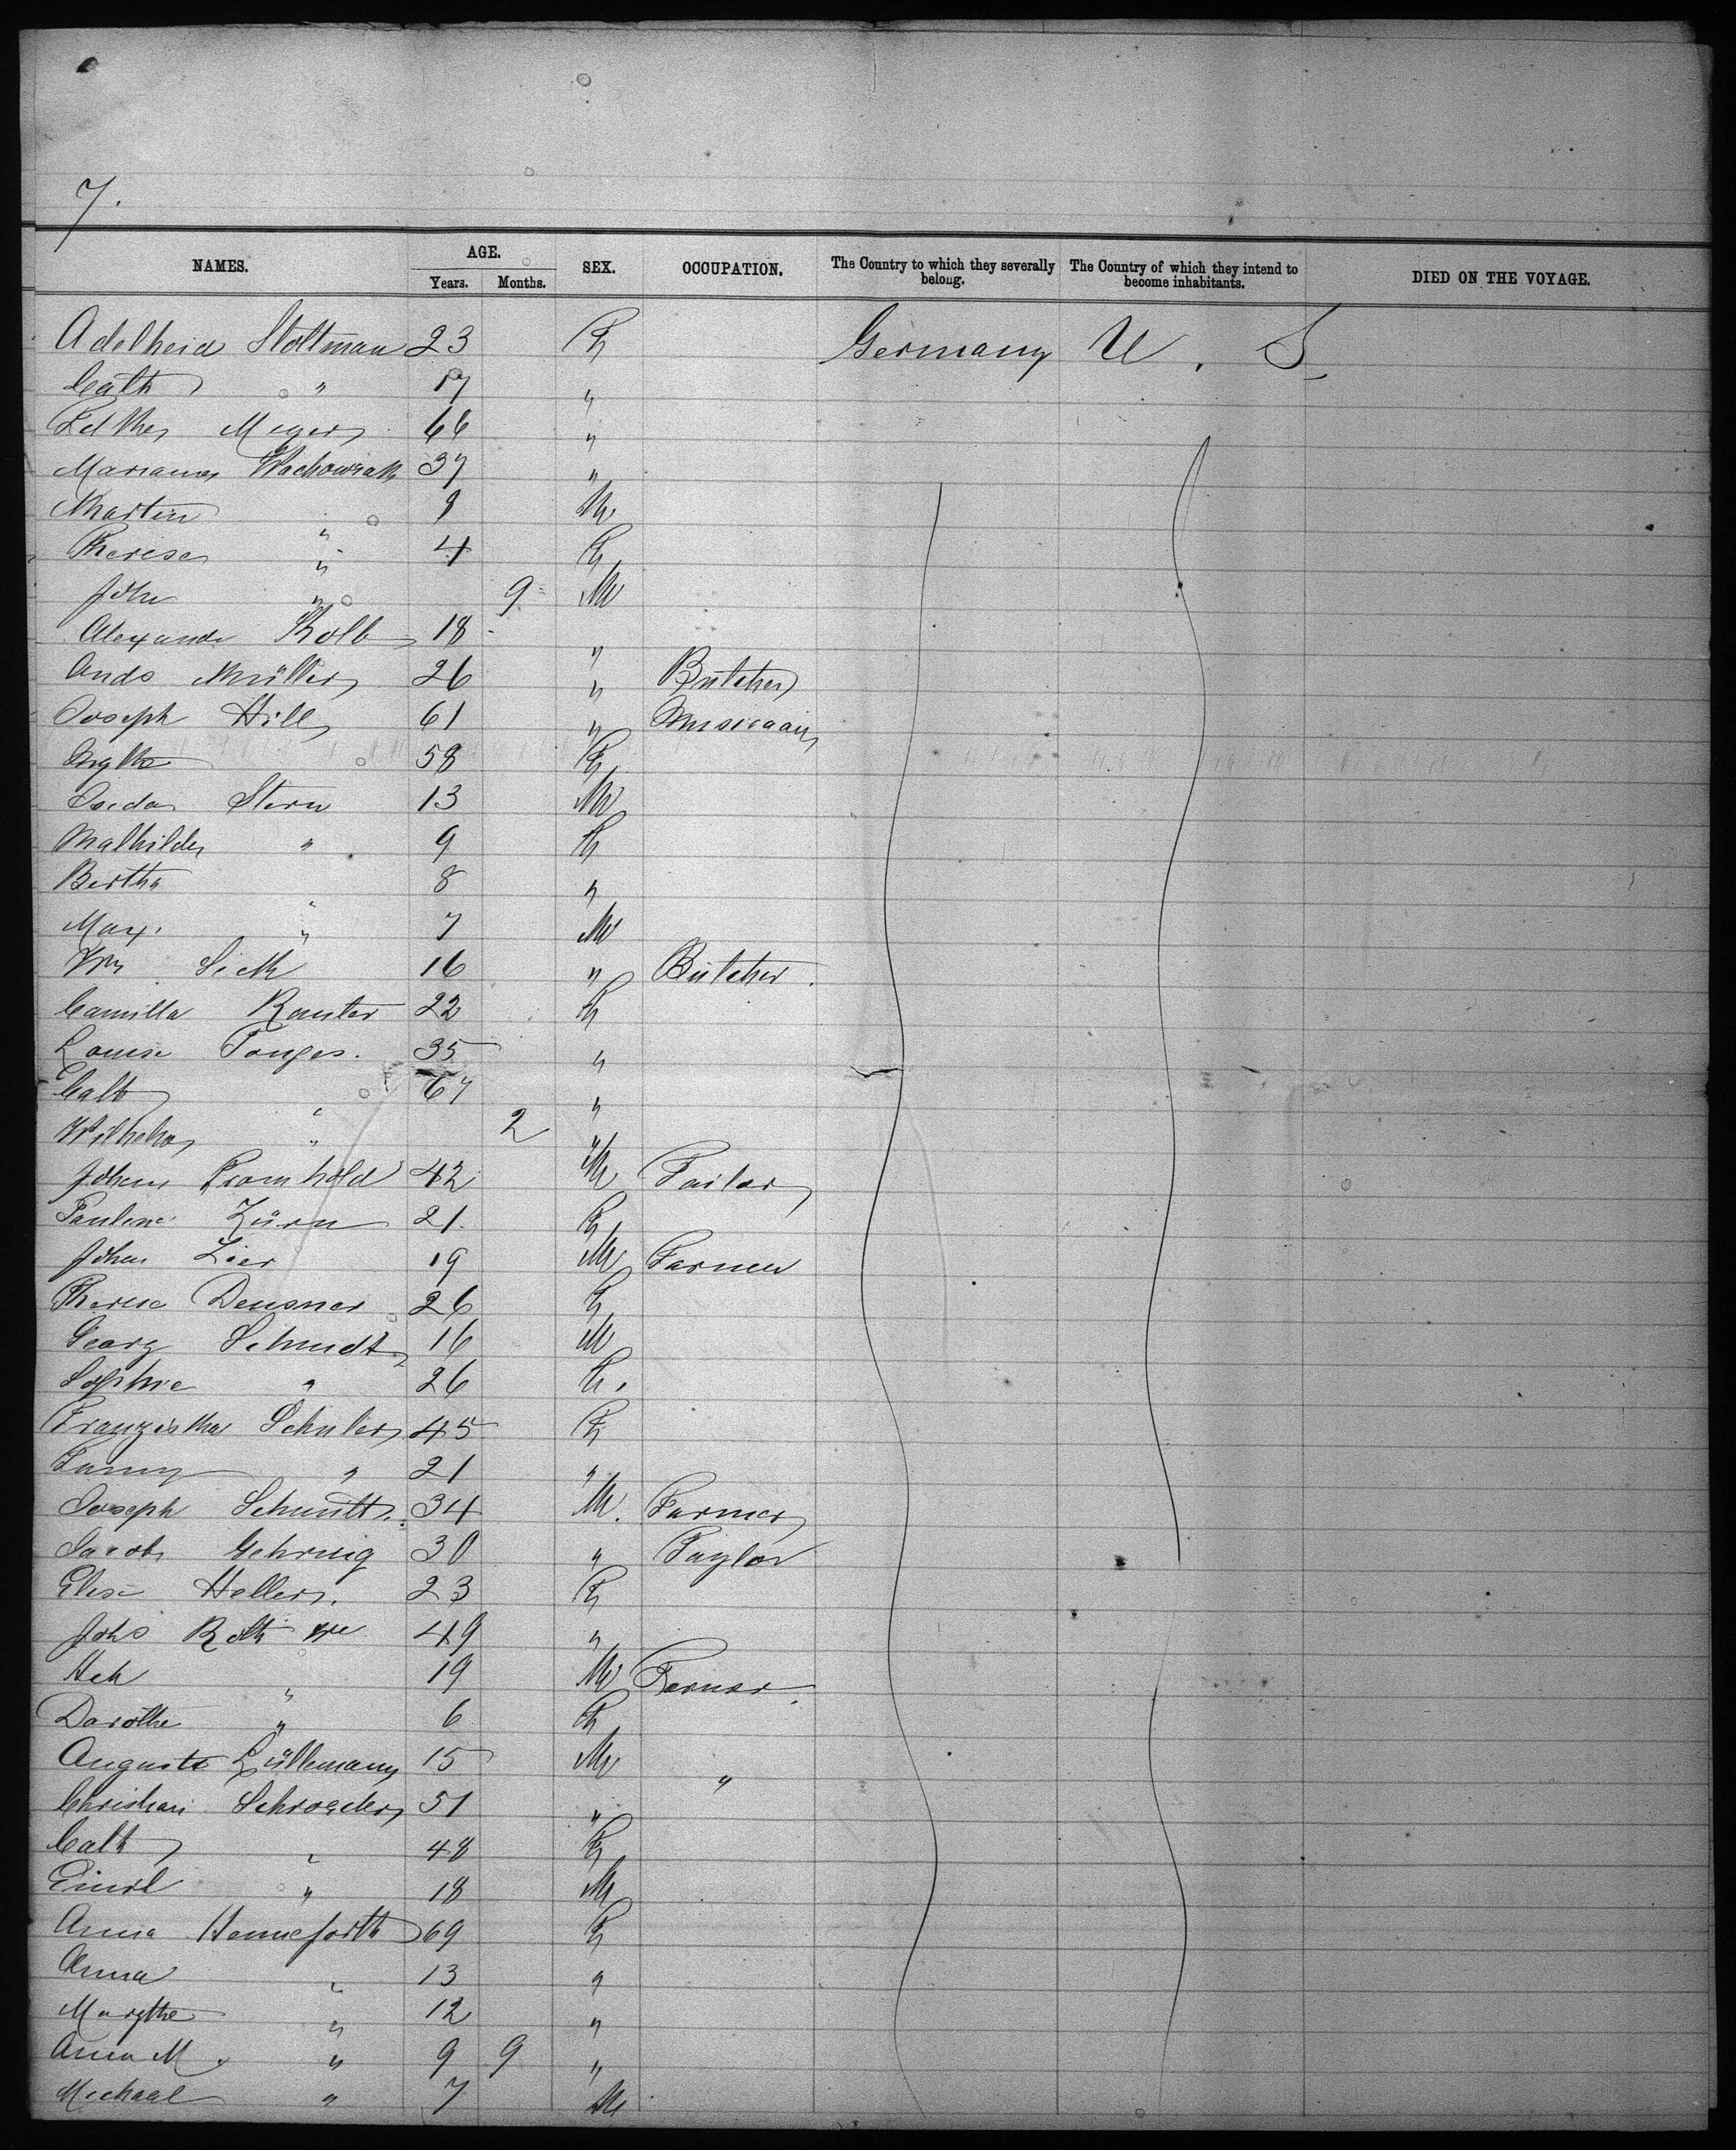 7.
NAMES. AGE. SEX. OCCUPATION. The Country to which they severally belong. The Country of which they intend to become inhabitants. DIED ON THE VOYAGE.
Years. Months.
Adelheid Stoltman 23 F Germany U. S.
Cath " 17 "
Meyer 66 "
Marianna Wachowiak 37 "
Martin " 8 M
Therese " 4 F
John " 9 M
Alexander Kolb 18 "
Ands Müller 26 " Butcher
Joseph Hill 61 " Musicaan
58 F
Isidor Stern 13 M
Mathilde " 9 F
Bertha " 8 "
Max. " 7 M
Wm Sieth 16 " Butcher.
Camilla Kanter 22 F
Louise Tonges. 35 "
Cath " 67 "
Wilhelm " 2 M
Johann Fromhold 42 M Tailor
Pauline Zürn 21. F
Johan Lier 19 M Farmer
Therese Deusner 26 F
Georg Schmidt 16 M
Sophie " 26 F.
Franziska Schuler 45 F
Fanny " 21 "
Joseph Schmitt. 34 M. Farmer
Jacob Gehrig 30 " Taylor
Elise Heller. 23 F
Johs Roth 49 "
Hch " 19 M Farmer.
Dorothe " 6 F
August Lüllemann 15 M "
Christian Schroeder 51 "
Cath " 48 F
Emil " 18 M
Anna Henneforth 69 F
Anna " 13 "
Margthe " 12 "
Anna M. " 9 9 "
Michael " 7 M